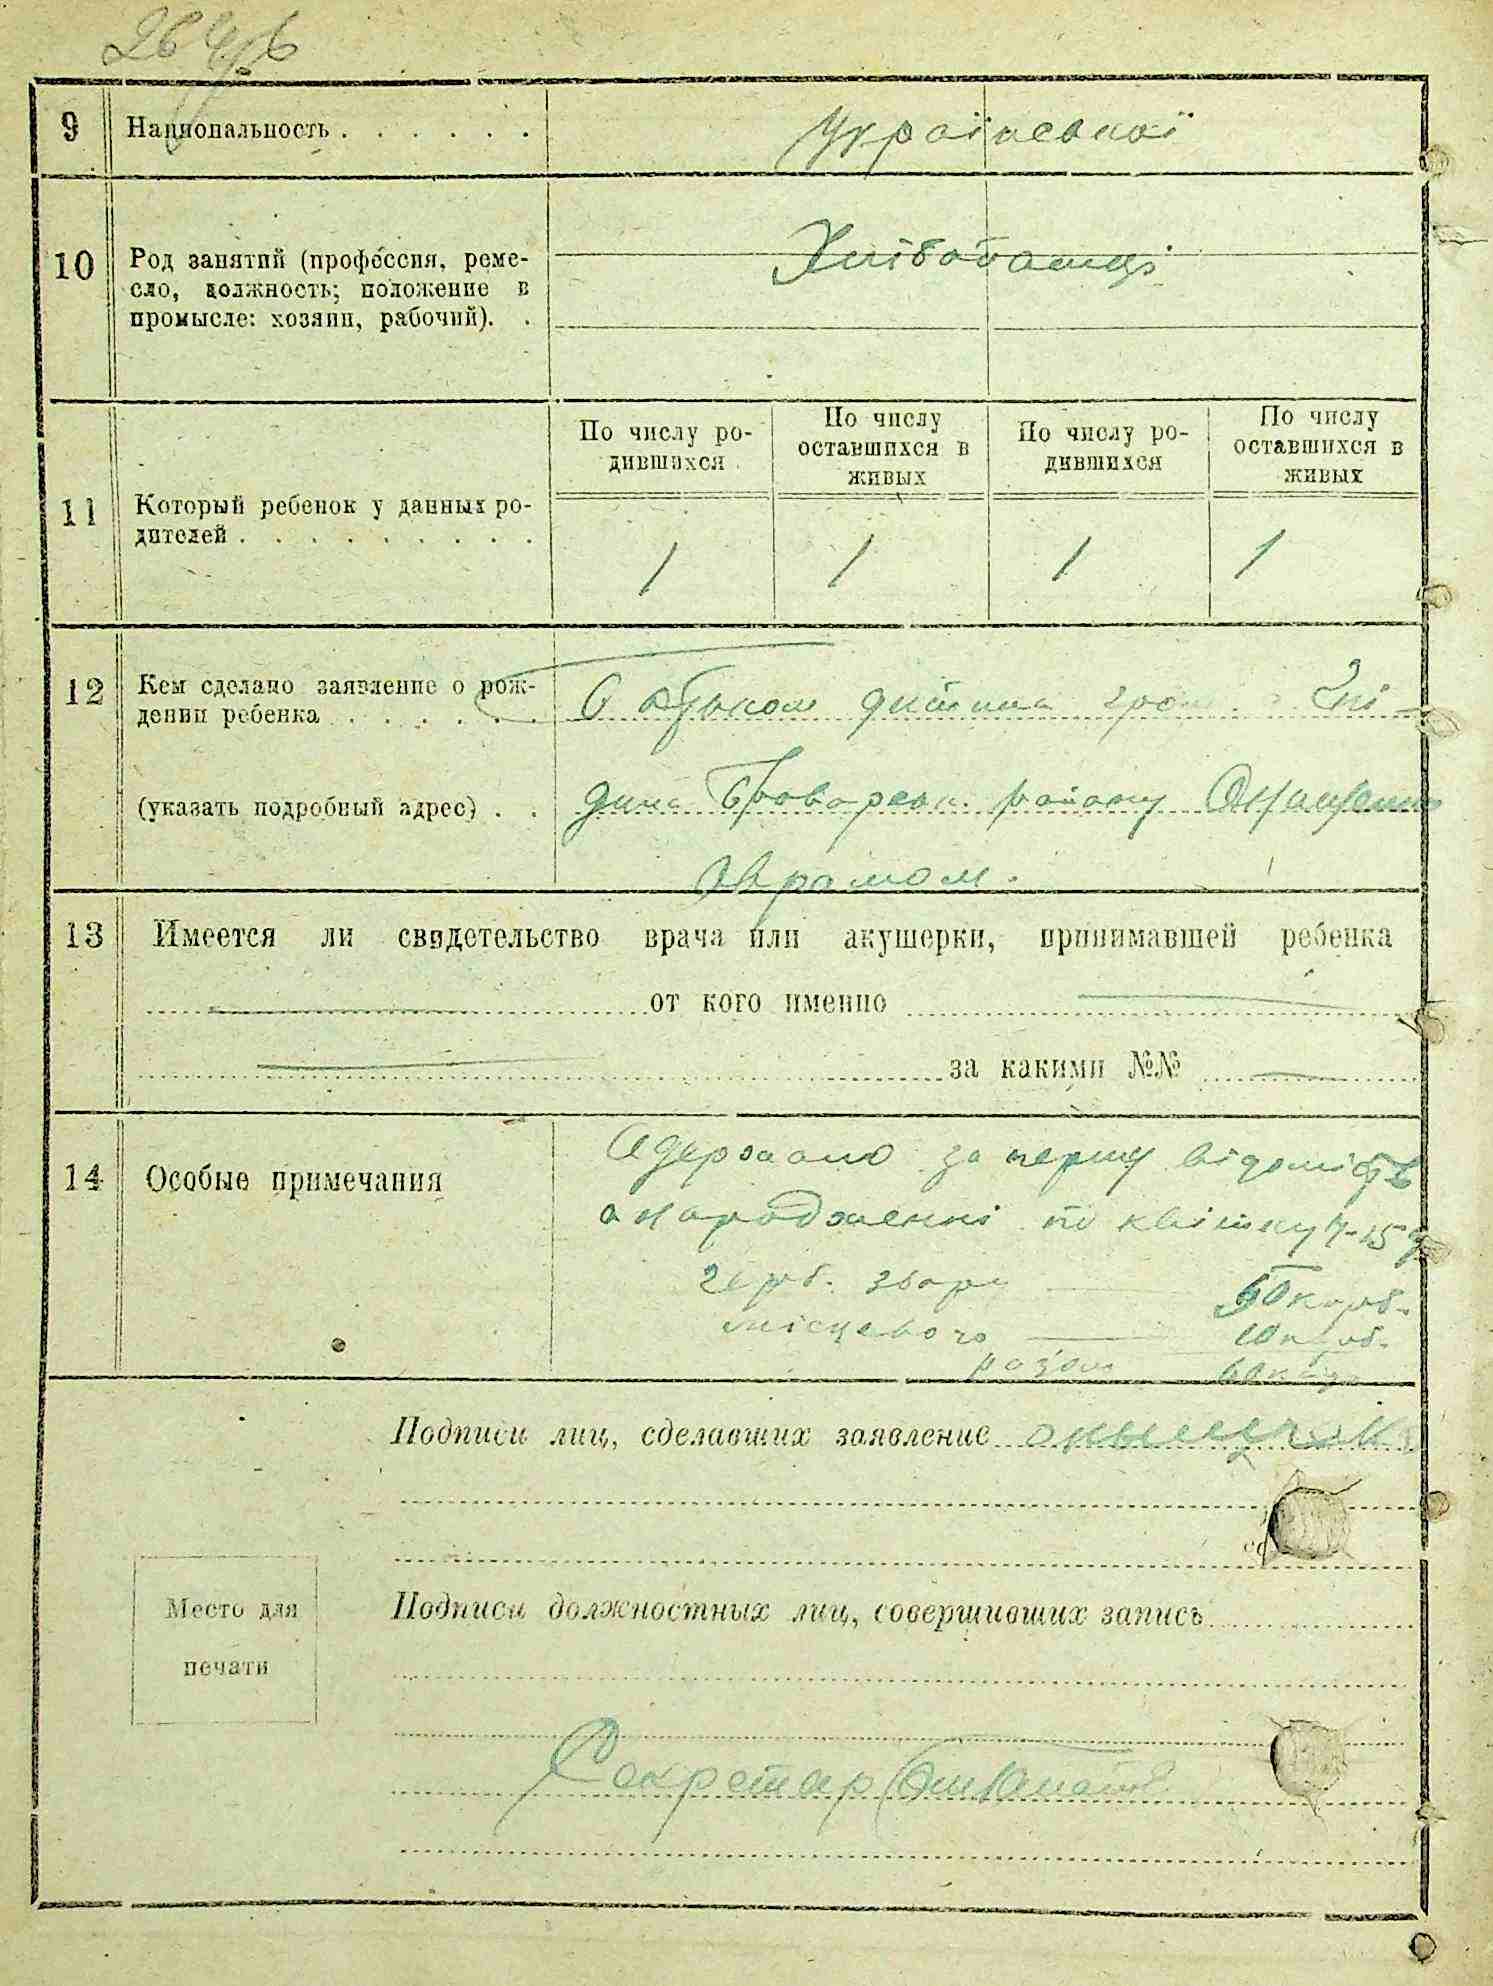 9 Национальность . . . . . . української
10 Род занятий (профессия, реме-
сло, должность; положение в
промысле: хозяин, рабочий). .
Хлібороби
По числу ро-
дившихся
По числу
оставшихся в
живых
По числу ро-
дившихся
По числу
оставшихся в
живых
11 Который ребенок у данных ро-
дителей . . . . . . . . .
1 1 1 1
12 Кем сделано заявление о рож-
дении ребенка . . . . . .
батьком дитини гром. Гні-
(указать подробный адрес) . .
дина Броварськ. району
Аврамом.
13 Имеется ли свидетельство врача или акушерки, принимавшей ребенка
от кого именно
за какими №№
14 Особые примечания
Одержано за першу відомість
о народженні по квітку
герб. збору 50 карб.
місцевого 10 карб.
разом
Подписи лиц, сделавших заявление
Подписи должностных лиц, совершивших запись
Место для
печати
Секретар